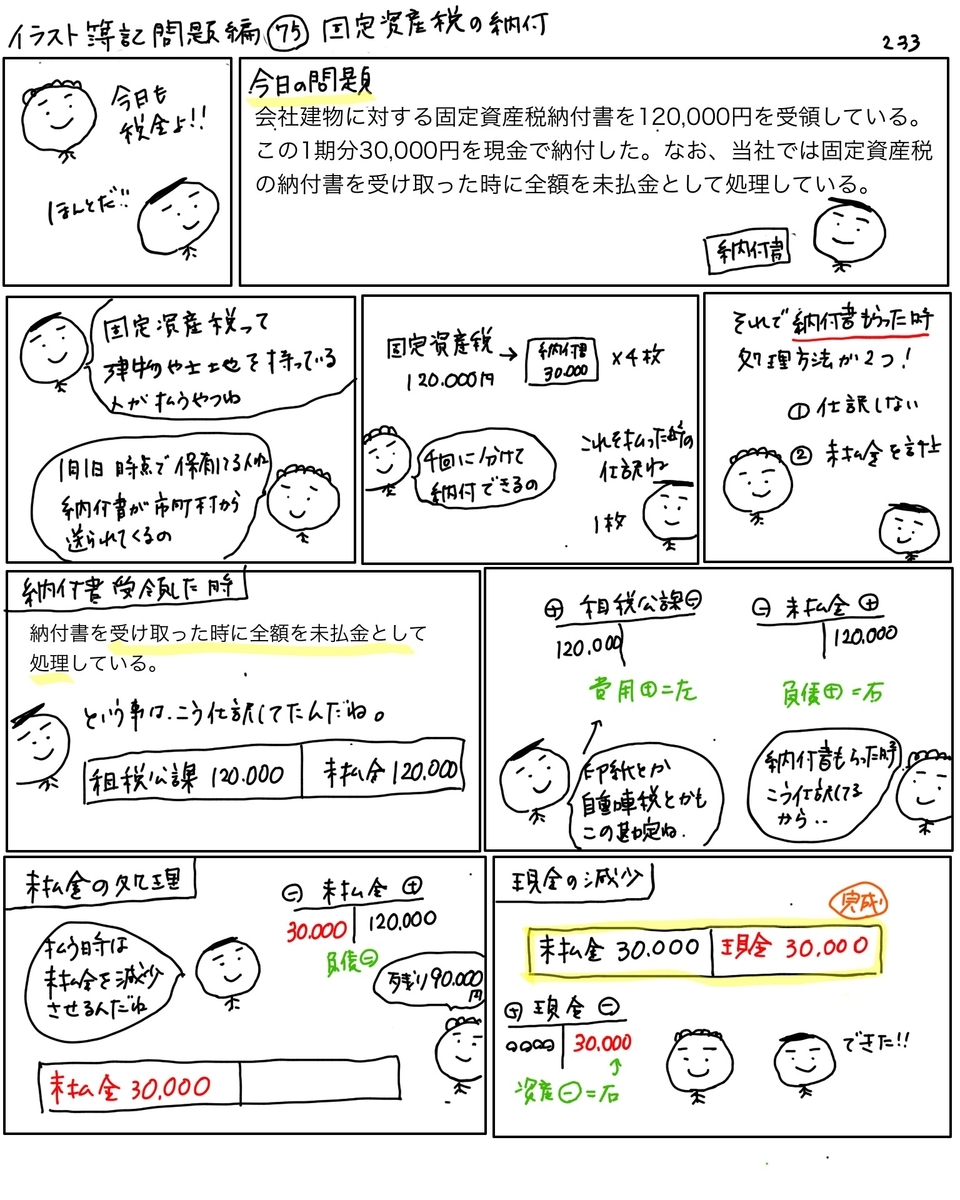 イラスト簿記問題編 75 固定資産税の納付
233
今日も
税金よ!!
ほんとだ!!
今日の問題
会社建物に対する固定資産税納付書を120,000円を受領している。
この1期分30,000円を現金で納付した。なお、当社では固定資産税
の納付書を受け取った時に全額を未払金として処理している。
納付書
固定資産税って
建物や土地を持っている
人が払うやつね
1月1日時点で保有してる人ね
納付書が市町村から
送られてくるの
固定資産税
120.000円
→
納付書
30.000
×4枚
4回に分けて
納付できるの
これを払った時の
仕訳ね
1枚
それで納付書もらった時
処理方法が2つ!
① 仕訳しない
② 未払金を計上
納付書受領した時
納付書を受け取った時に全額を未払金として
処理している。
という事は、こう仕訳してたんだね。
租税公課 120.000 未払金 120,000
⊕ 租税公課 ⊖
120.000
費用⊕=左
⊖ 未払金 ⊕
120.000
負債⊕=右
印紙とか
自動車税とかも
この勘定ね.
納付書もらった時
こう仕訳してる
から..
未払金の処理
払う時は
未払金を減少
させるんだね
⊖ 未払金 ⊕
30.000 120,000
負債⊖
残り90.000
円
未払金 30,000
現金の減少
完成!
未払金 30.000 現金 30,000
⊕ 現金 ⊖
30.000
資産⊖=右
できた!!